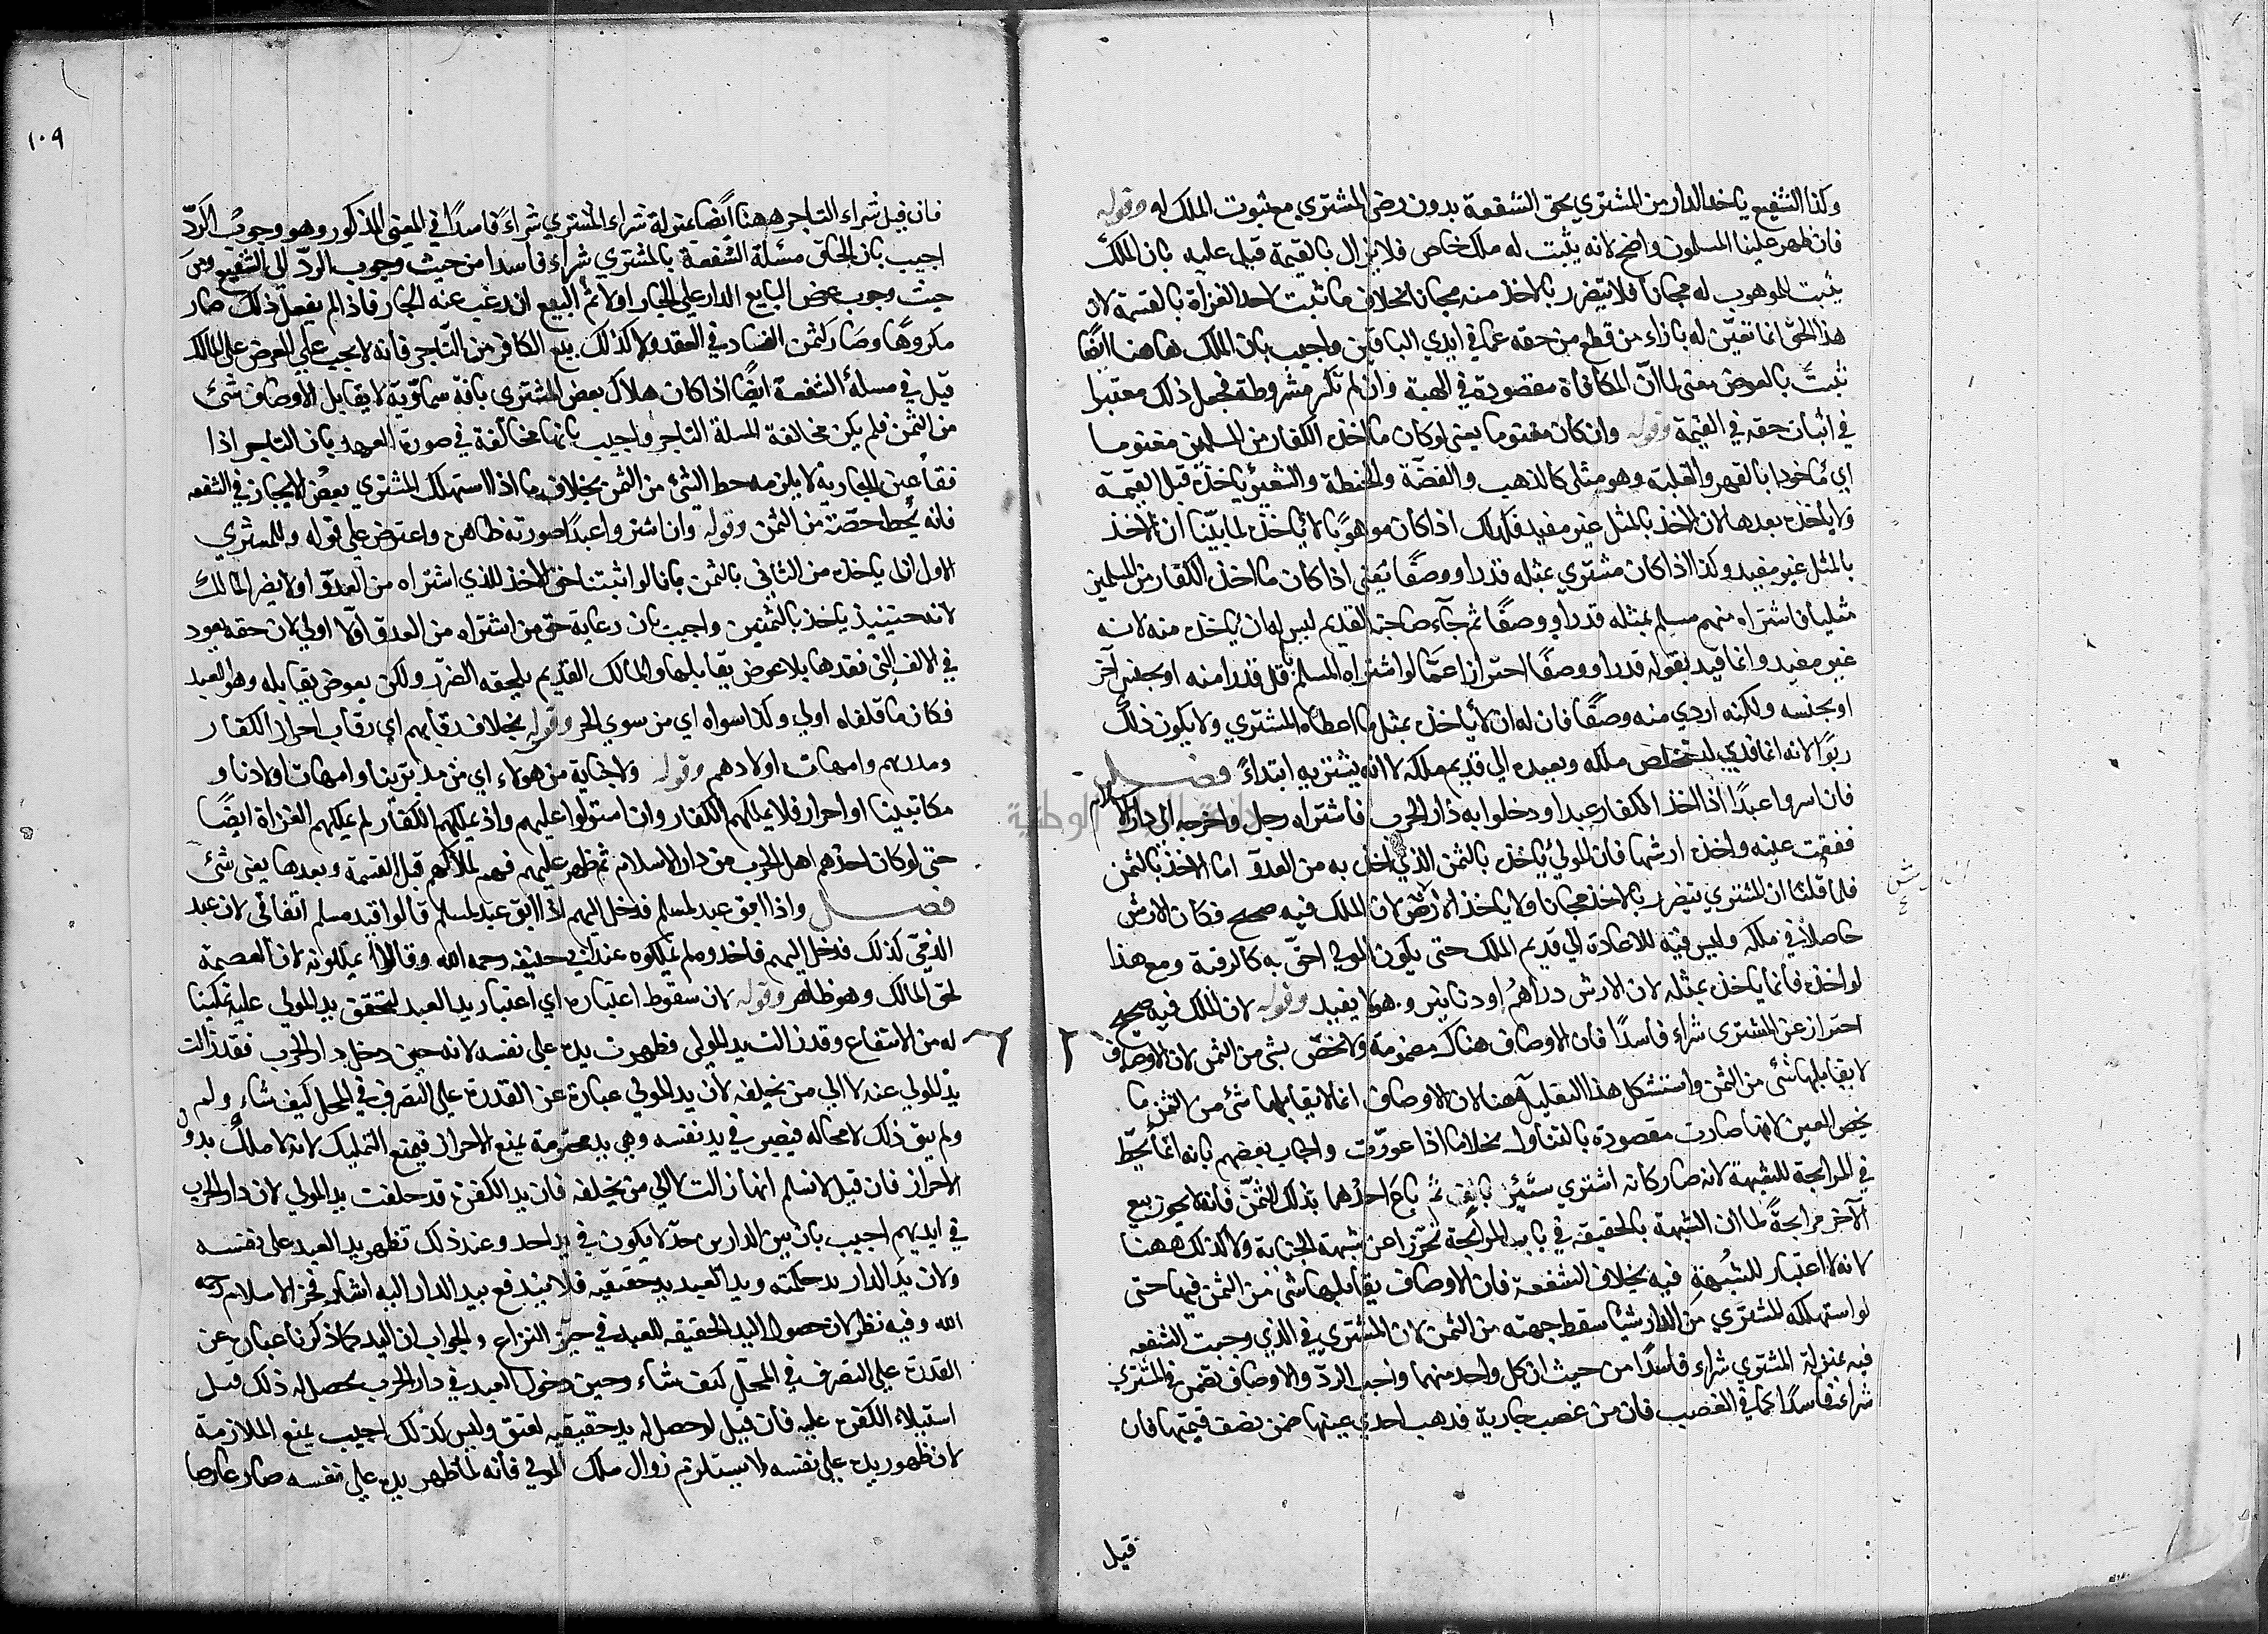 وكذا الشفيع ياخد الدار من المشتري بحق الشفعة بدون رضى المشتري مع ثبوت الملك له وقوله
فان ظهر علينا المسلمون واضح لانه يثبت له ملك خاص فلا يزال بالقيمة قيل عليه بان الملك
يثبت للموهوب له مجانا فلا يتضرر بالاخذ منه مجانا بخلاف ما ثبت لاحد الغزاة بالقسمة لان
هذا الحق انما تعيّن له بازاء من قطع من حقه عما في ايدي الباقين واجيب بان الملك هاهنا ايضا
ثبت بالعوض معنى لما انّ المكافأة مقصودة في الهبة وان لم تكن مشروطة فجعل ذلك معتبرا
في اثبات حقه في القيمة وقوله وان كان مغنوما يعني لو كان ما اخذ الكفار من المسلمين مغنوما
اي مأخودا بالقهر والغلبة وهو مثلي كالذهب والفضة والحنطة والشعير ياخذه قبل القيمة
ولا ياخذه بعدها لان الاخذ بالمثل غير مفيد فكذلك اذا كان موهوبًا لا ياخذ لما بيّنا ان الاخذ
بالمثل غير مفيد وكذا اذا كان مشتري بمثله قدرا ووصفًا يعني اذا كان ما اخذ الكفار من المسلمين
مثليا فاشتراه منهم مسلم بمثله قدرا ووصفًا ثم جآء صاحبه القديم ليس له ان ياخذ منه لانه
غير مفيد وانما قيد بقوله قدرا ووصفًا احترازا عمّا لو اشتراه المسلم قل قدرا منه او بجنس آخر
او بجنسه ولكنه اردي منه وصفًا فان له ان لا ياخذ بمثل ما اعطاه المشتري ولا يكون ذلك
ربوًا لانه انما فدي ليتخلص ملكه ويعيده الي قديم ملكه لا انه يشتريه ابتداءً فصل
فان اسروا عبدًا اذا اخذ الكفار عبدا ودخلوا به دار الحرب فاشتراه رجل واخرجه الي دار الاسلام
ففقئت عينه واخذ ارشها فان المولي ياخذ بالثمن الذي اخذ به من العدوّ اما الاخذ بالثمن
فلما قلنا ان المشتري يتضرر بالاخذ مجانا ولا ياخذ الارش لان الملك فيه صحيح فكان الارش
حاصلاً في ملكه وليس فيه للاعادة الي قديم الملك حتى يكون المولي احق به كالرقبة ومع هذا
لو اخذ فانما ياخذ بمثله لان الارش دراهم او دنانير وهو لا يفيد وقوله لان الملك فيه صحيح
احتراز عن المشترى شراء فاسدًا فان الاوصاف هناك مضمونة ولا تختص بشي من الثمن لان الاوصاف
لا يقابلها شئ من الثمن واستشكل هذا التعليل هنا لان الاوصاف انما لا يقابلها شئ من الثمن ما
يخص العين لانها صارت مقصودة بالتناول بخلاف ما اذا عورّت واجاب بعضهم بانه انما يحطّ
في المرابحة للشبهة لانه صار كانه اشتري شيئين بالف ثم باع احدهما بذلك الثمن فانه لا يجوز بيع
الآخر مرابحةً لما ان الشبهة بالحقيقة في باب المرابحة تحرّزا عن شبهة الخيانة ولا كذلك ههنا
لانه لا اعتبار للشبهةِ فيه بخلاف الشفعة فان الاوصاف يقابلها شئ من الثمن فيها حتى
لو استهلك المشتري من الدار شيا سقط حصته من الثمن لان المشتري في الذي وجبت الشفعه
فيه بمنزلة المشتري شراء فاسدًا من حيث ان كل واحد منهما واجب الردّ والاوصاف تضمن في المشتري
شراء فاسدًا كما في الغصب فان من غصب جارية فذهب احدي عينها ضمن نصف قيمتها فان
قيل
١٠٩
فان قيل شراء التاجر ههنا ايضا بمنزلة شراء المشتري شراءً فاسدًا في المعنى المذكور وهو وجوب الردّ
اجيب بان الحاق مسئلة الشفعة بالمشتري شراء فاسدا من حيث وجوب الردّ الي الشفيع ومن
حيث وجوب عرض البايع الدار علي الجار اولا ثم البيع ان رغب عنه الجار فاذا لم يفعل ذلك صار
مكروهًا وصار كثمن الفساد في العقد ولا كذلك بيع الكافر من التاجر فانه لا يجب علي العرض على المالك
قيل في مسلة الشفعة ايضًا اذا كان هلاك بعض المشتري بافة سماوّية لا يقابل الاوصاف شئ
من الثمن فلم يكن مخالفة المسلة التاجر واجيب بانها مخالفة في صورة العهد بان التاجر اذا
فقأ عين الجارية لا يلزمه حط الشئ من الثمن بخلاف ما اذا استهلك المشتري بعض الايجاز في الشفعه
فانه يُحط حصّته من الثمن وقوله وان اشتروا عبدًا صورته ظاهرة واعترض على قوله وللمشتري
الاول ان ياخذ من الثاني بالثمن بانا لو اثبتنا حق الاخذ للذي اشتراه من العدوّ اولا يضر المالك
لانه حينيذ ياخذ بالثمنين واجيب بان رعاية حق من اشتراه من العدوّ اوّلا اولي لان حقه يعود
في الالف التي نقدها بلا عوض يقابلها والمالك القديم يلحقه الضرر ولكن بعوض يقابله وهو العبد
فكان ما قلناه اولي وكذا سواه اي من سوي الحر وقوله بخلاف رقابهم اي رقاب احرار الكفار
ومدبرهم وامهات اولادهم وقوله ولا جناية من هولاء اي من مدبرينا وامهات اولادنا و
مكاتبينا او احرار فلا يملكهم الكفار وان استولوا عليهم واذ لم يملكهم الكفار لم يملكهم الغزاة ايضًا
حتى لو كان اخذهم اهل الحرب من دار الاسلام ثم ظهر عليهم فهم لملاكهم قبل القسمة وبعدها بغير شئ
فصل واذا ابق عبد لمسلم فدخل اليهم اذا ابق عبد لمسلم قالوا قيد مسلم اتفاقي لان عبد
الذمّي كذلك فدخل اليهم فاخذوه لم يملكوه عند ابي حنيفه رحمه الله وقالا يملكونه لان العصمة
لحق المالك وهو ظاهر وقوله لان سقوط اعتباره اي اعتبار يد العبد لتحقق يد المولي عليه تمكينا
له من الانتفاع وقد زالت يد المولي فظهرت يده علي نفسه لانه حين دخل دار الحرب فقد زالت
يد المولي عنه لا الي من يخلفه لان يد المولي عبارة عن القدرة علي التصرف في المحل كيف شاء ولم
ولم يبق ذلك لا محاله فيصير في يد نفسه وهي يد محترمة يمنع الاحراز فيمنع التمليك لانه لا ملك بدون
الاحراز فان قيل لا نسلم انها زالت لا الي من يخلفه فان يد الكفرة قد خلفت يد المولي لان دار الحرب
في ايديهم اجيب بان بين الدارين حدّ لا يكون في يد احد وعند ذلك تظهر يد العبد على نفسه
ولان يد الدار يد حكميّة ويد العبد يد حقيقيه فلا يندفع بيد الدار اليه اشار فخر الاسلام رحمه
الله وفيه نظر لان حصول اليد الحقيقه للعبد في حيّز النزاع والجواب ان اليد كما ذكرنا عبارة عن
القدرة علي التصرف في المحل كيف شاء وحين دخول العبد في دار الحرب يحصل له ذلك قبل
استيلاء الكفرة عليه فان قيل لو حصل له يد حقيقيه لعتق وليس كذلك اجيب بمنع الملازمة
لان ظهور يده علي نفسه لا يستلزم زوال ملك المولي فانه لما ظهر يده علي نفسه صار غاصبا